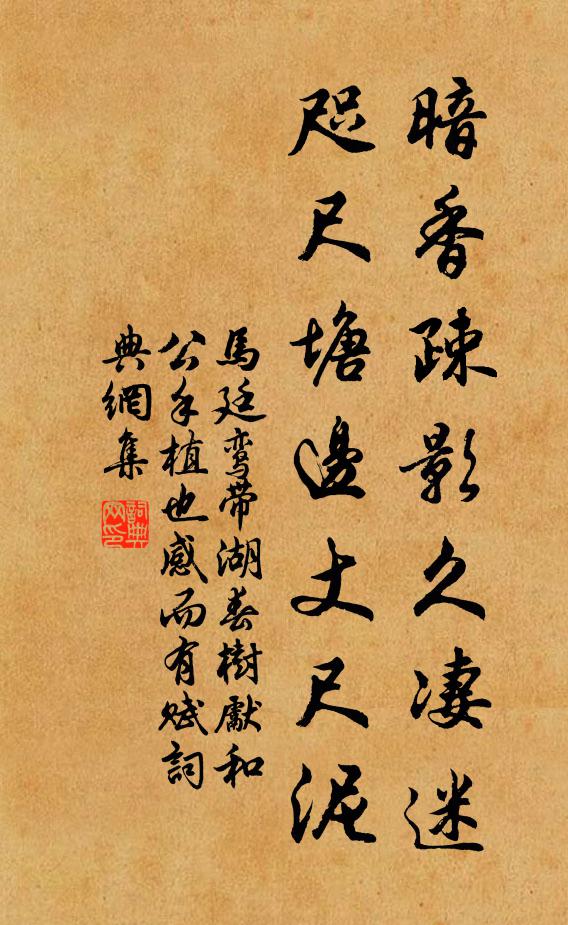 暗香疎影久凄迷
咫尺塘邊丈尺泥
馬廷鸞帶湖春樹獻和
公手植也感而有赋詞
典網集
詞典
网印